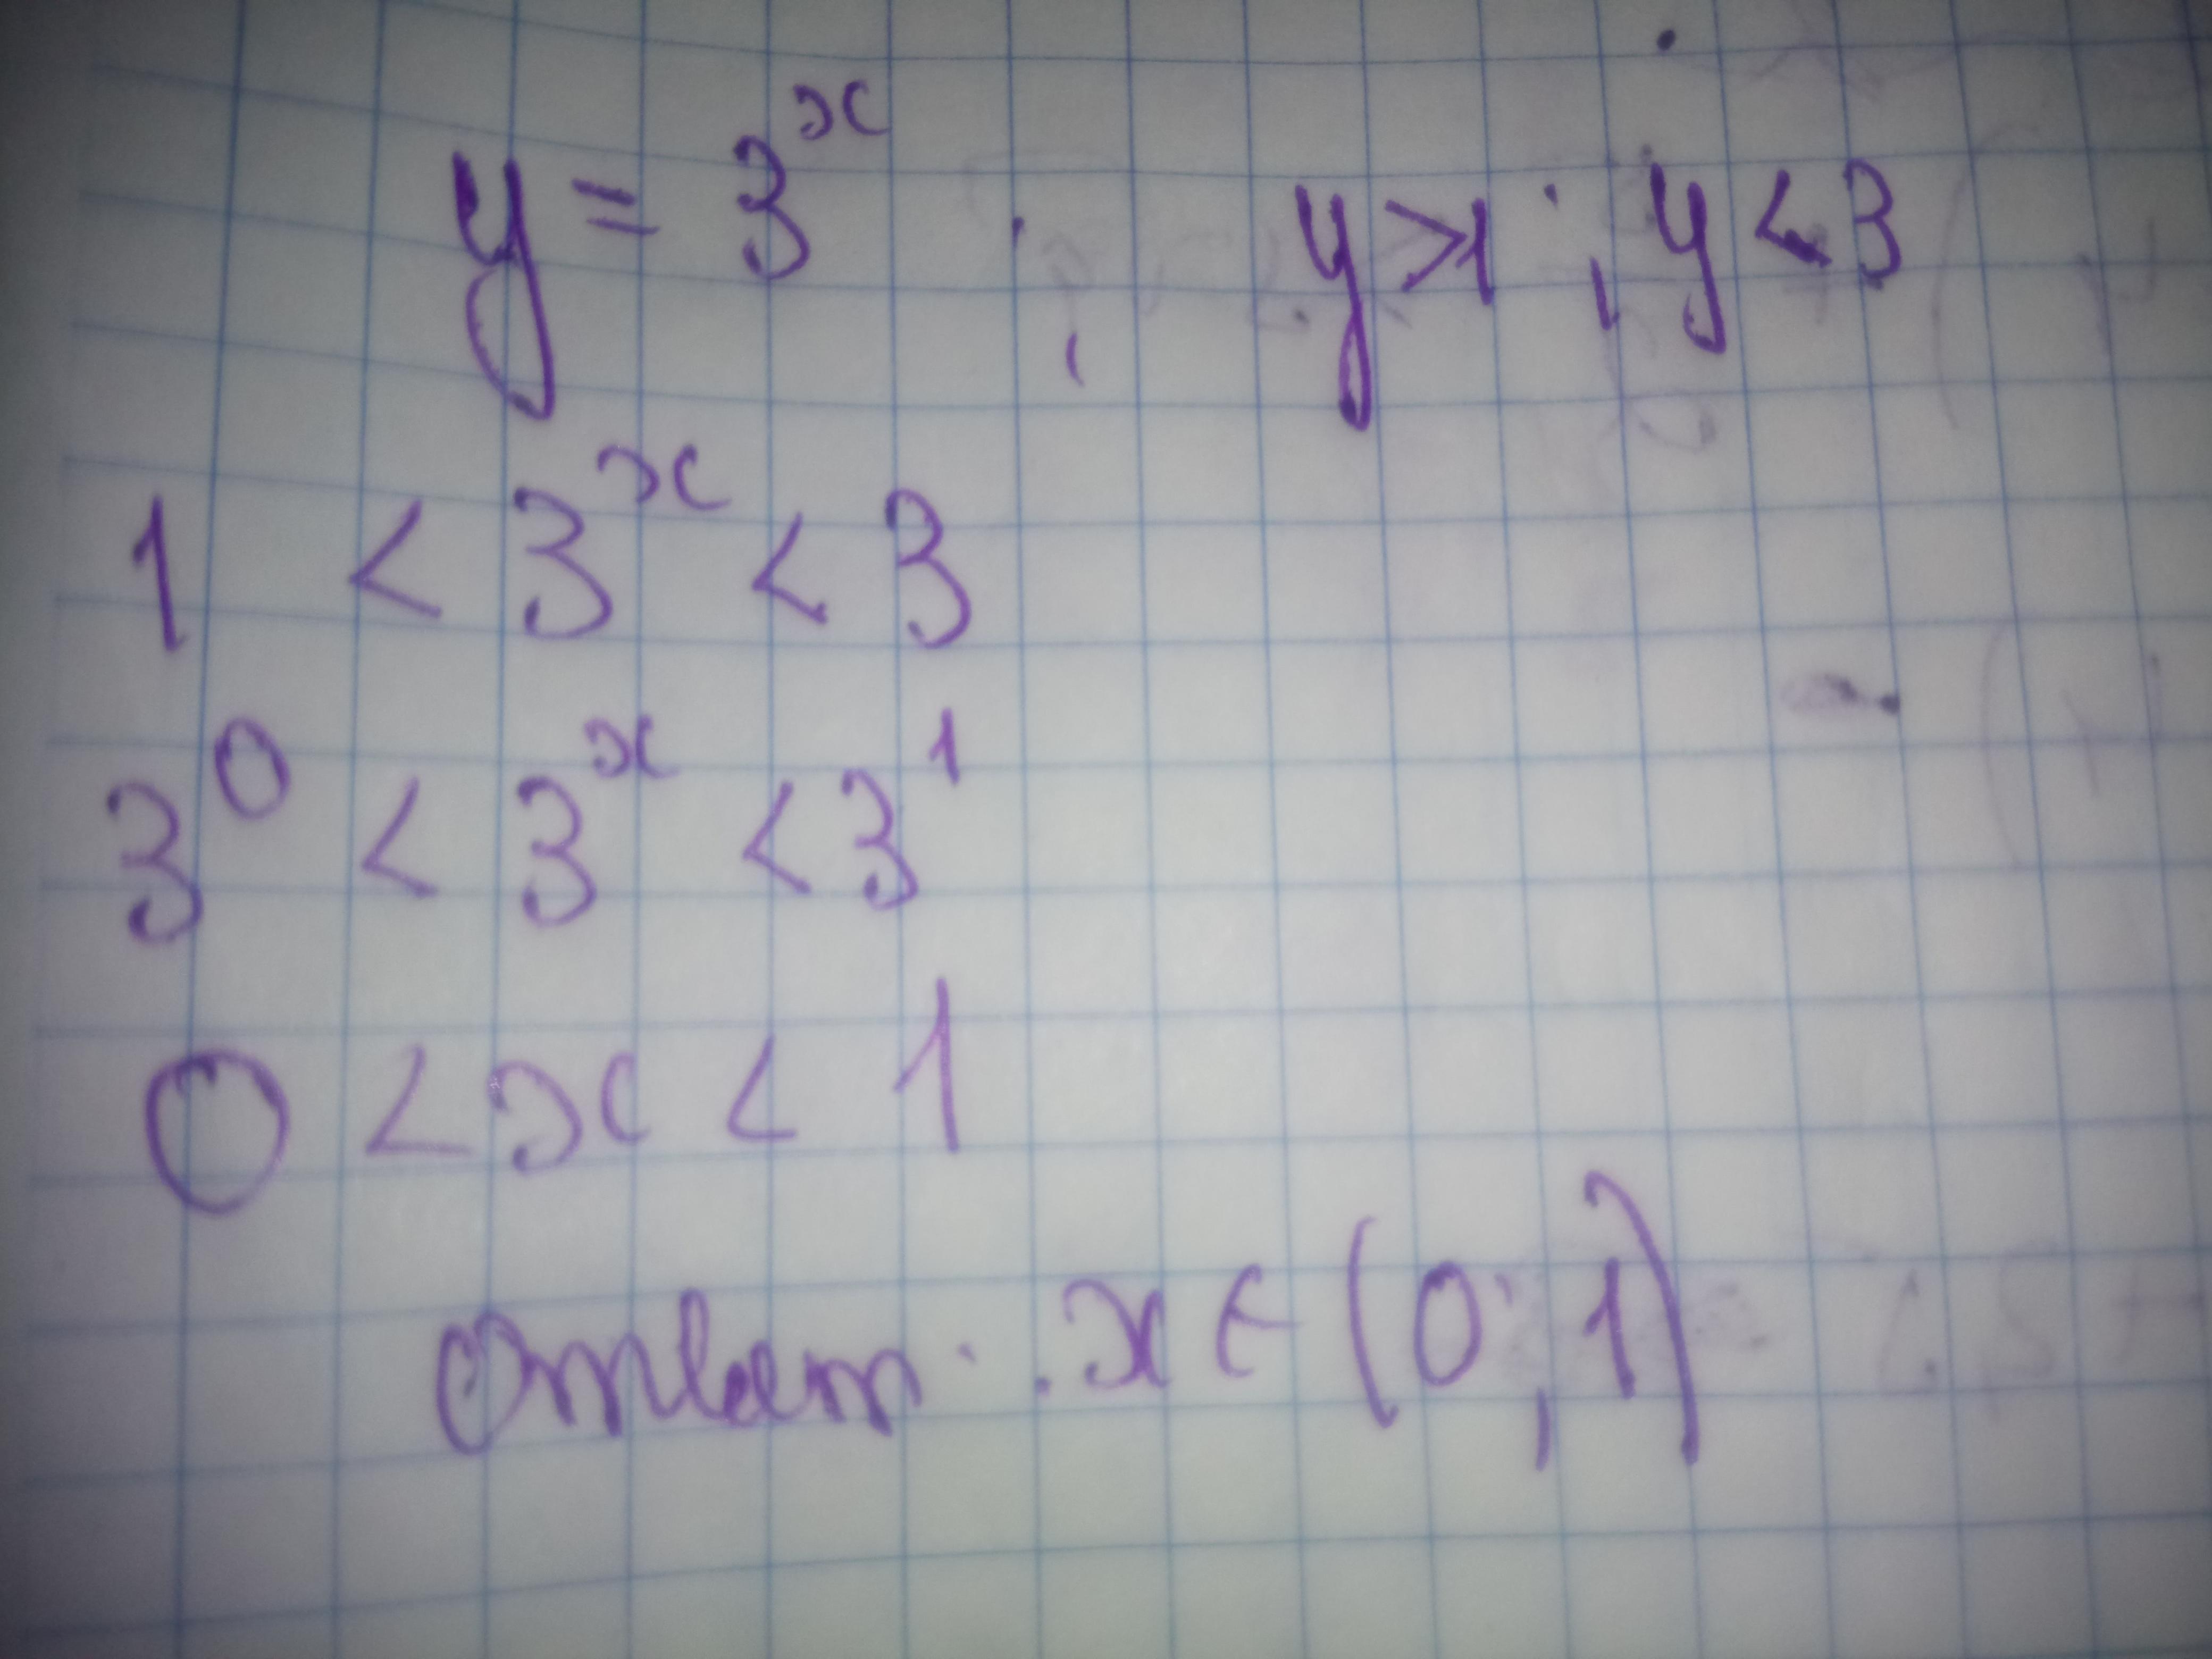 y = 3^x ; y > 1 ; y < 3
1 < 3^x < 3
3^0 < 3^x < 3^1
0 < x < 1
Ответ: x ∈ (0; 1)